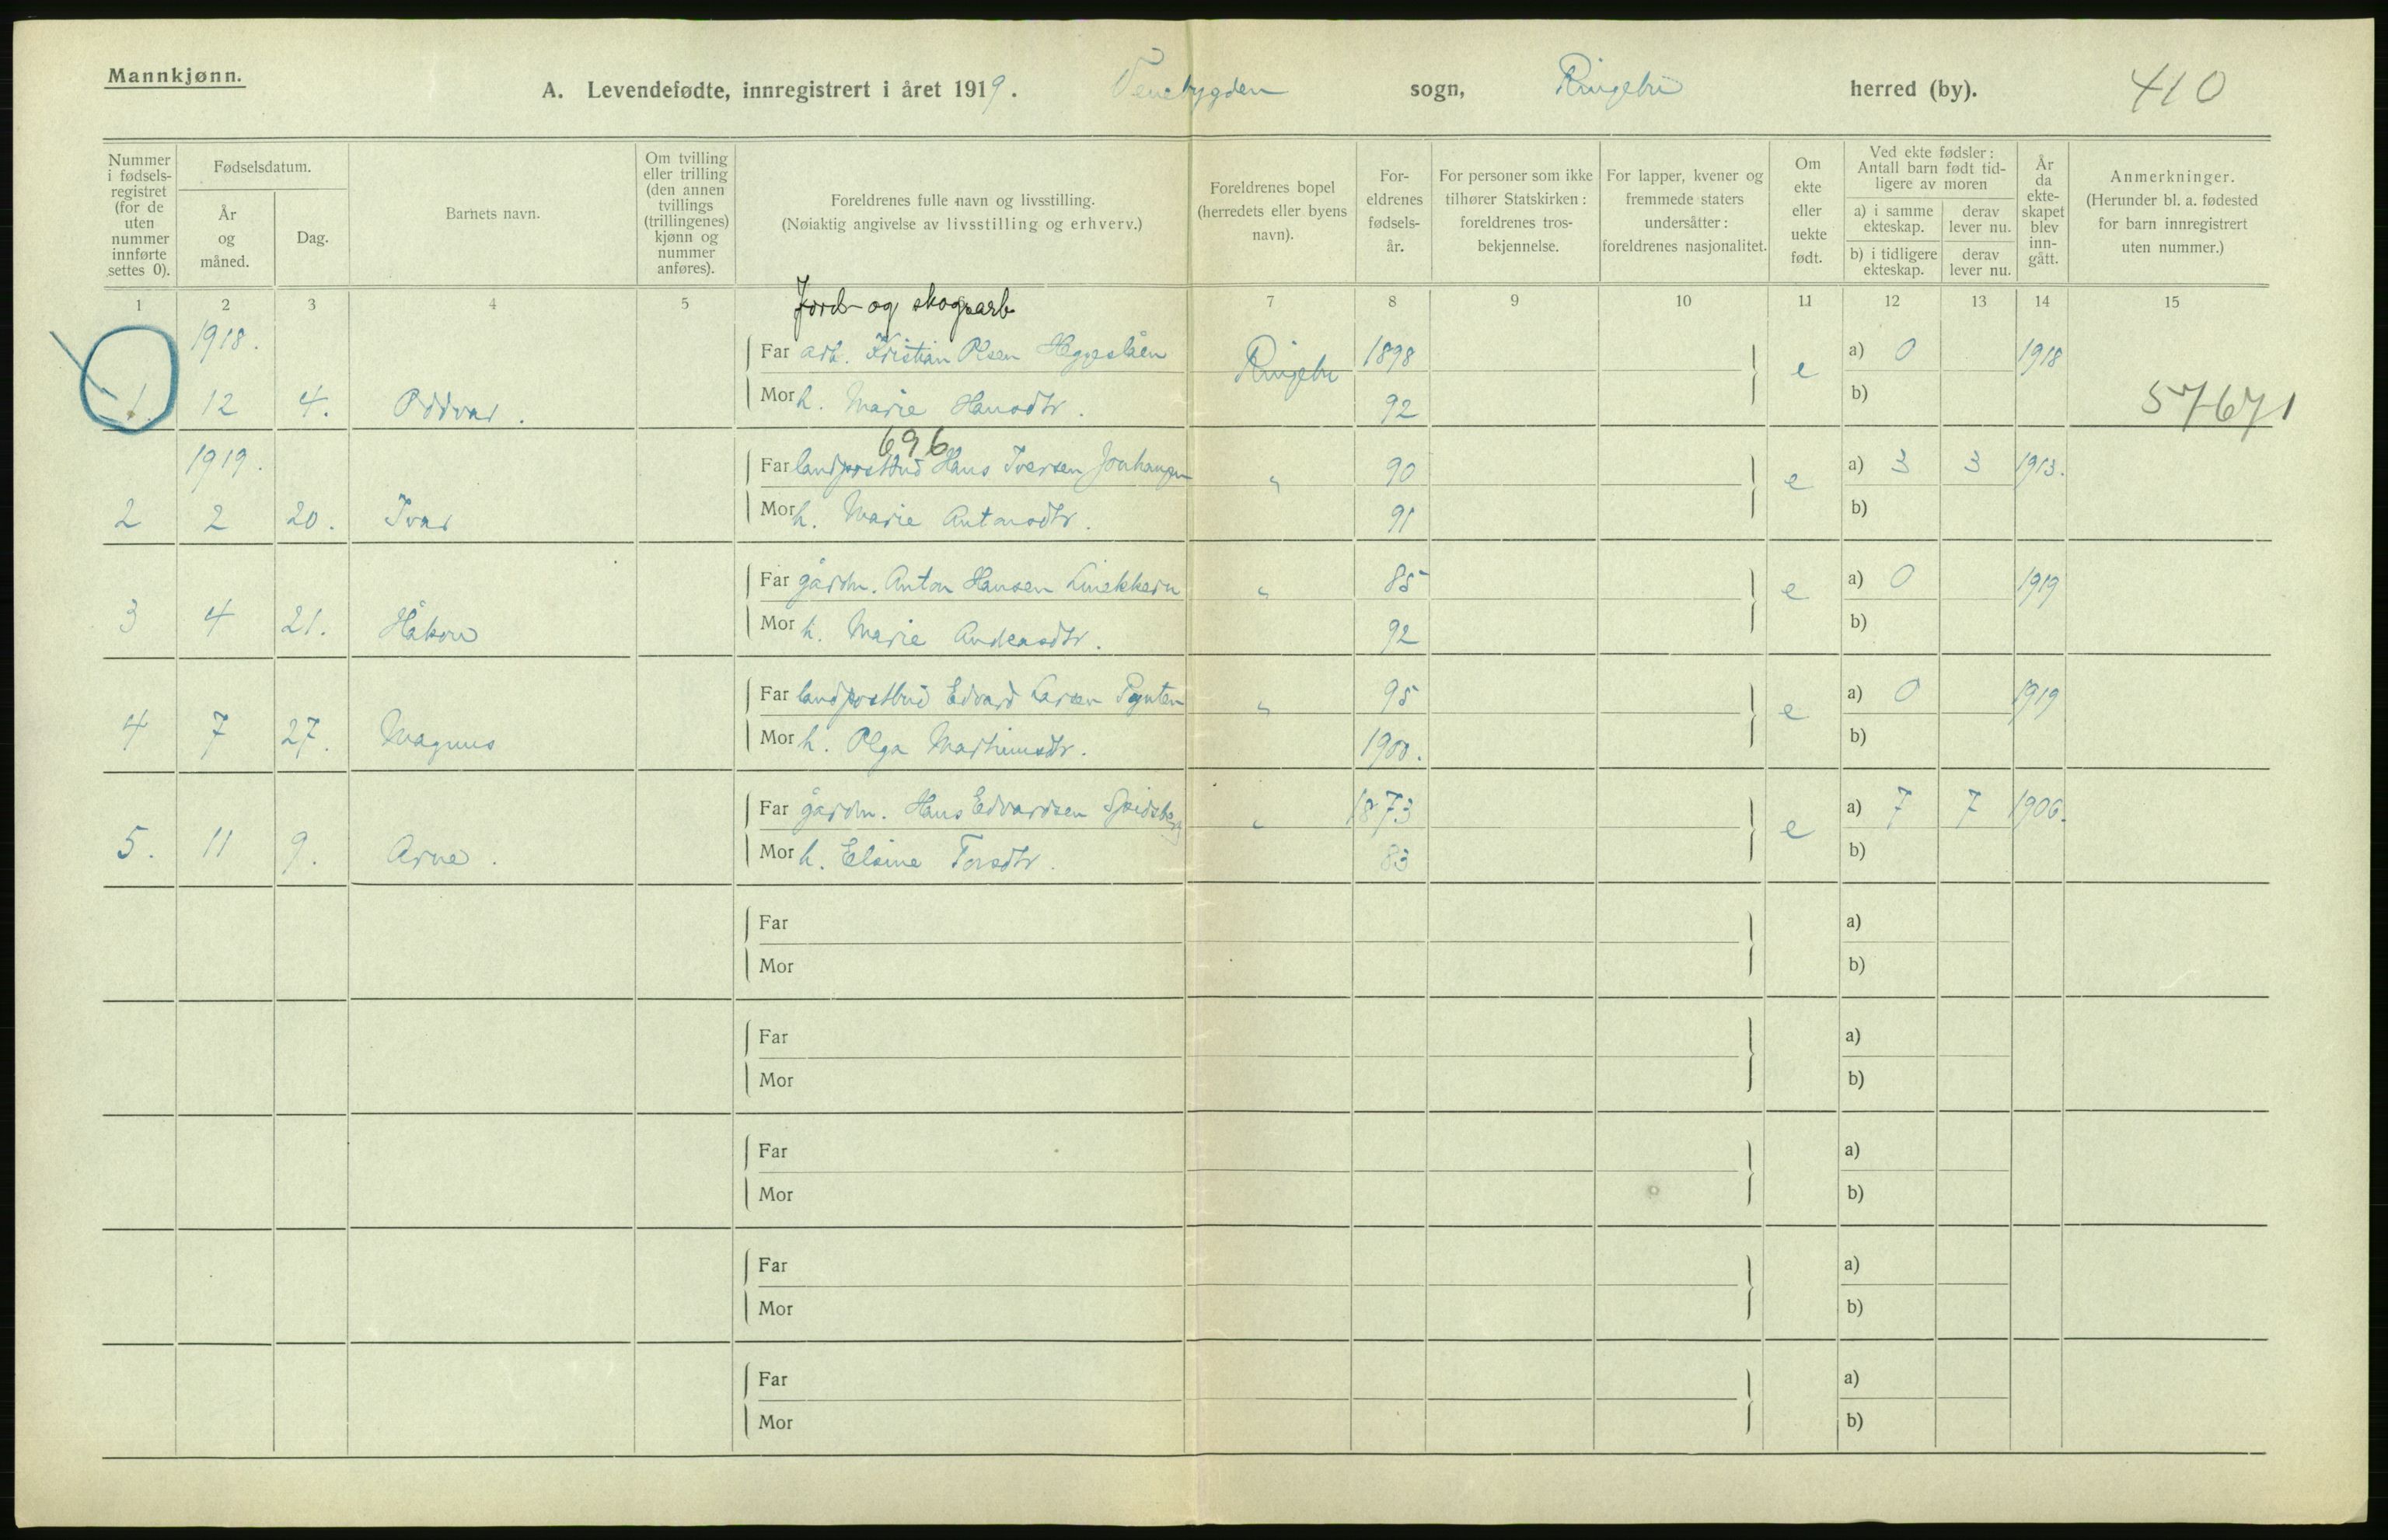 Mannkjønn.
A. Levendefødte, innregistrert i året 1919. Venebygden sogn, Ringebu herred (by). 410
Nummer i fødsels-registret (for de uten nummer innførte settes 0).
Fødselsdatum.
År og måned.
Dag.
Barnets navn.
Om tvilling eller trilling (den annen tvillings (trillingenes) kjønn og nummer anføres).
Foreldrenes fulle navn og livsstilling.
(Nøiaktig angivelse av livsstilling og erhverv.)
Foreldrenes bopel (herredets eller byens navn).
For-eldrenes fødsels-år.
For personer som ikke tilhører Statskirken: foreldrenes tros-bekjennelse.
For lapper, kvener og fremmede staters undersåtter: foreldrenes nasjonalitet.
Om ekte eller uekte født.
Ved ekte fødsler: Antall barn født tid-ligere av moren
a) i samme ekteskap.
derav lever nu.
b) i tidligere ekteskap.
derav lever nu.
År da ekte-skapet blev inn-gått.
Anmerkninger.
(Herunder bl. a. fødested for barn innregistrert uten nummer.)
1 2 3 4 5 7 8 9 10 11 12 13 14 15
Jord- og skogsarb
1918.
Far arb. Kristian Olsen Heggeslåen Ringebu 1898 e a) 0 1918
1. 12 4. Oddvar. Mor h. Marie Hansdtr. 92 b) 57671
696
1919.
Far landpostbud Hans Iversen Jonhaugen " 90 e a) 3 3 1913.
2 2 20. Ivar Mor h. Marie Antonsdtr. 91 b)
Far gårdm. Anton Hansen " 85 e a) 0 1919
3 4 21. Håkon Mor h. Marie Andersdtr. 92 b)
Far landpostbud Edvard Larsen " 95 e a) 0 1919
4 7 27. Magnus Mor h. Olga Martinusdtr. 1900. b)
Far gårdm. Hans Edvardsen " 1873 e a) 7 7 1906.
5. 11 9. Arne. Mor h. Elsine Torsdtr. 83 b)
Far a)
Mor b)
Far a)
Mor b)
Far a)
Mor b)
Far a)
Mor b)
Far a)
Mor b)